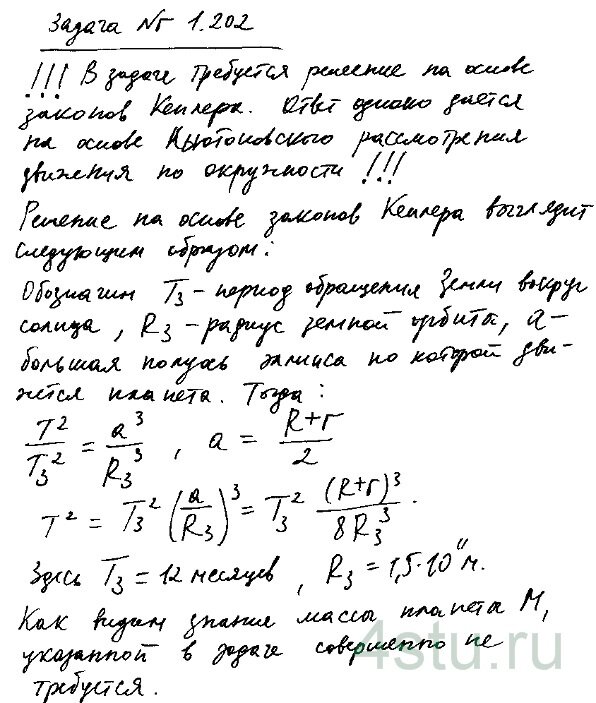 Задача № 1.202
!!! В задаче требуется решение на основе
законов Кеплера. Ответ однако дается
на основе Ньютоновского рассмотрения
движения по окружности !!!
Решение на основе законов Кеплера выглядит
следующим образом:
Обозначим T₃ – период обращения Земли вокруг
солнца, R₃ – радиус земной орбиты, a –
большая полуось эллипса по которой дви-
жется планета. Тогда:
T²/T₃² = a³/R₃³, a = (R+r)/2
T² = T₃² (a/R₃)³ = T₃² (R+r)³/8R₃³.
Здесь T₃ = 12 месяцев, R₃ = 1,5·10¹¹ м.
Как видим знание массы планеты M,
указанной в задаче совершенно не
требуется.
4stu.ru